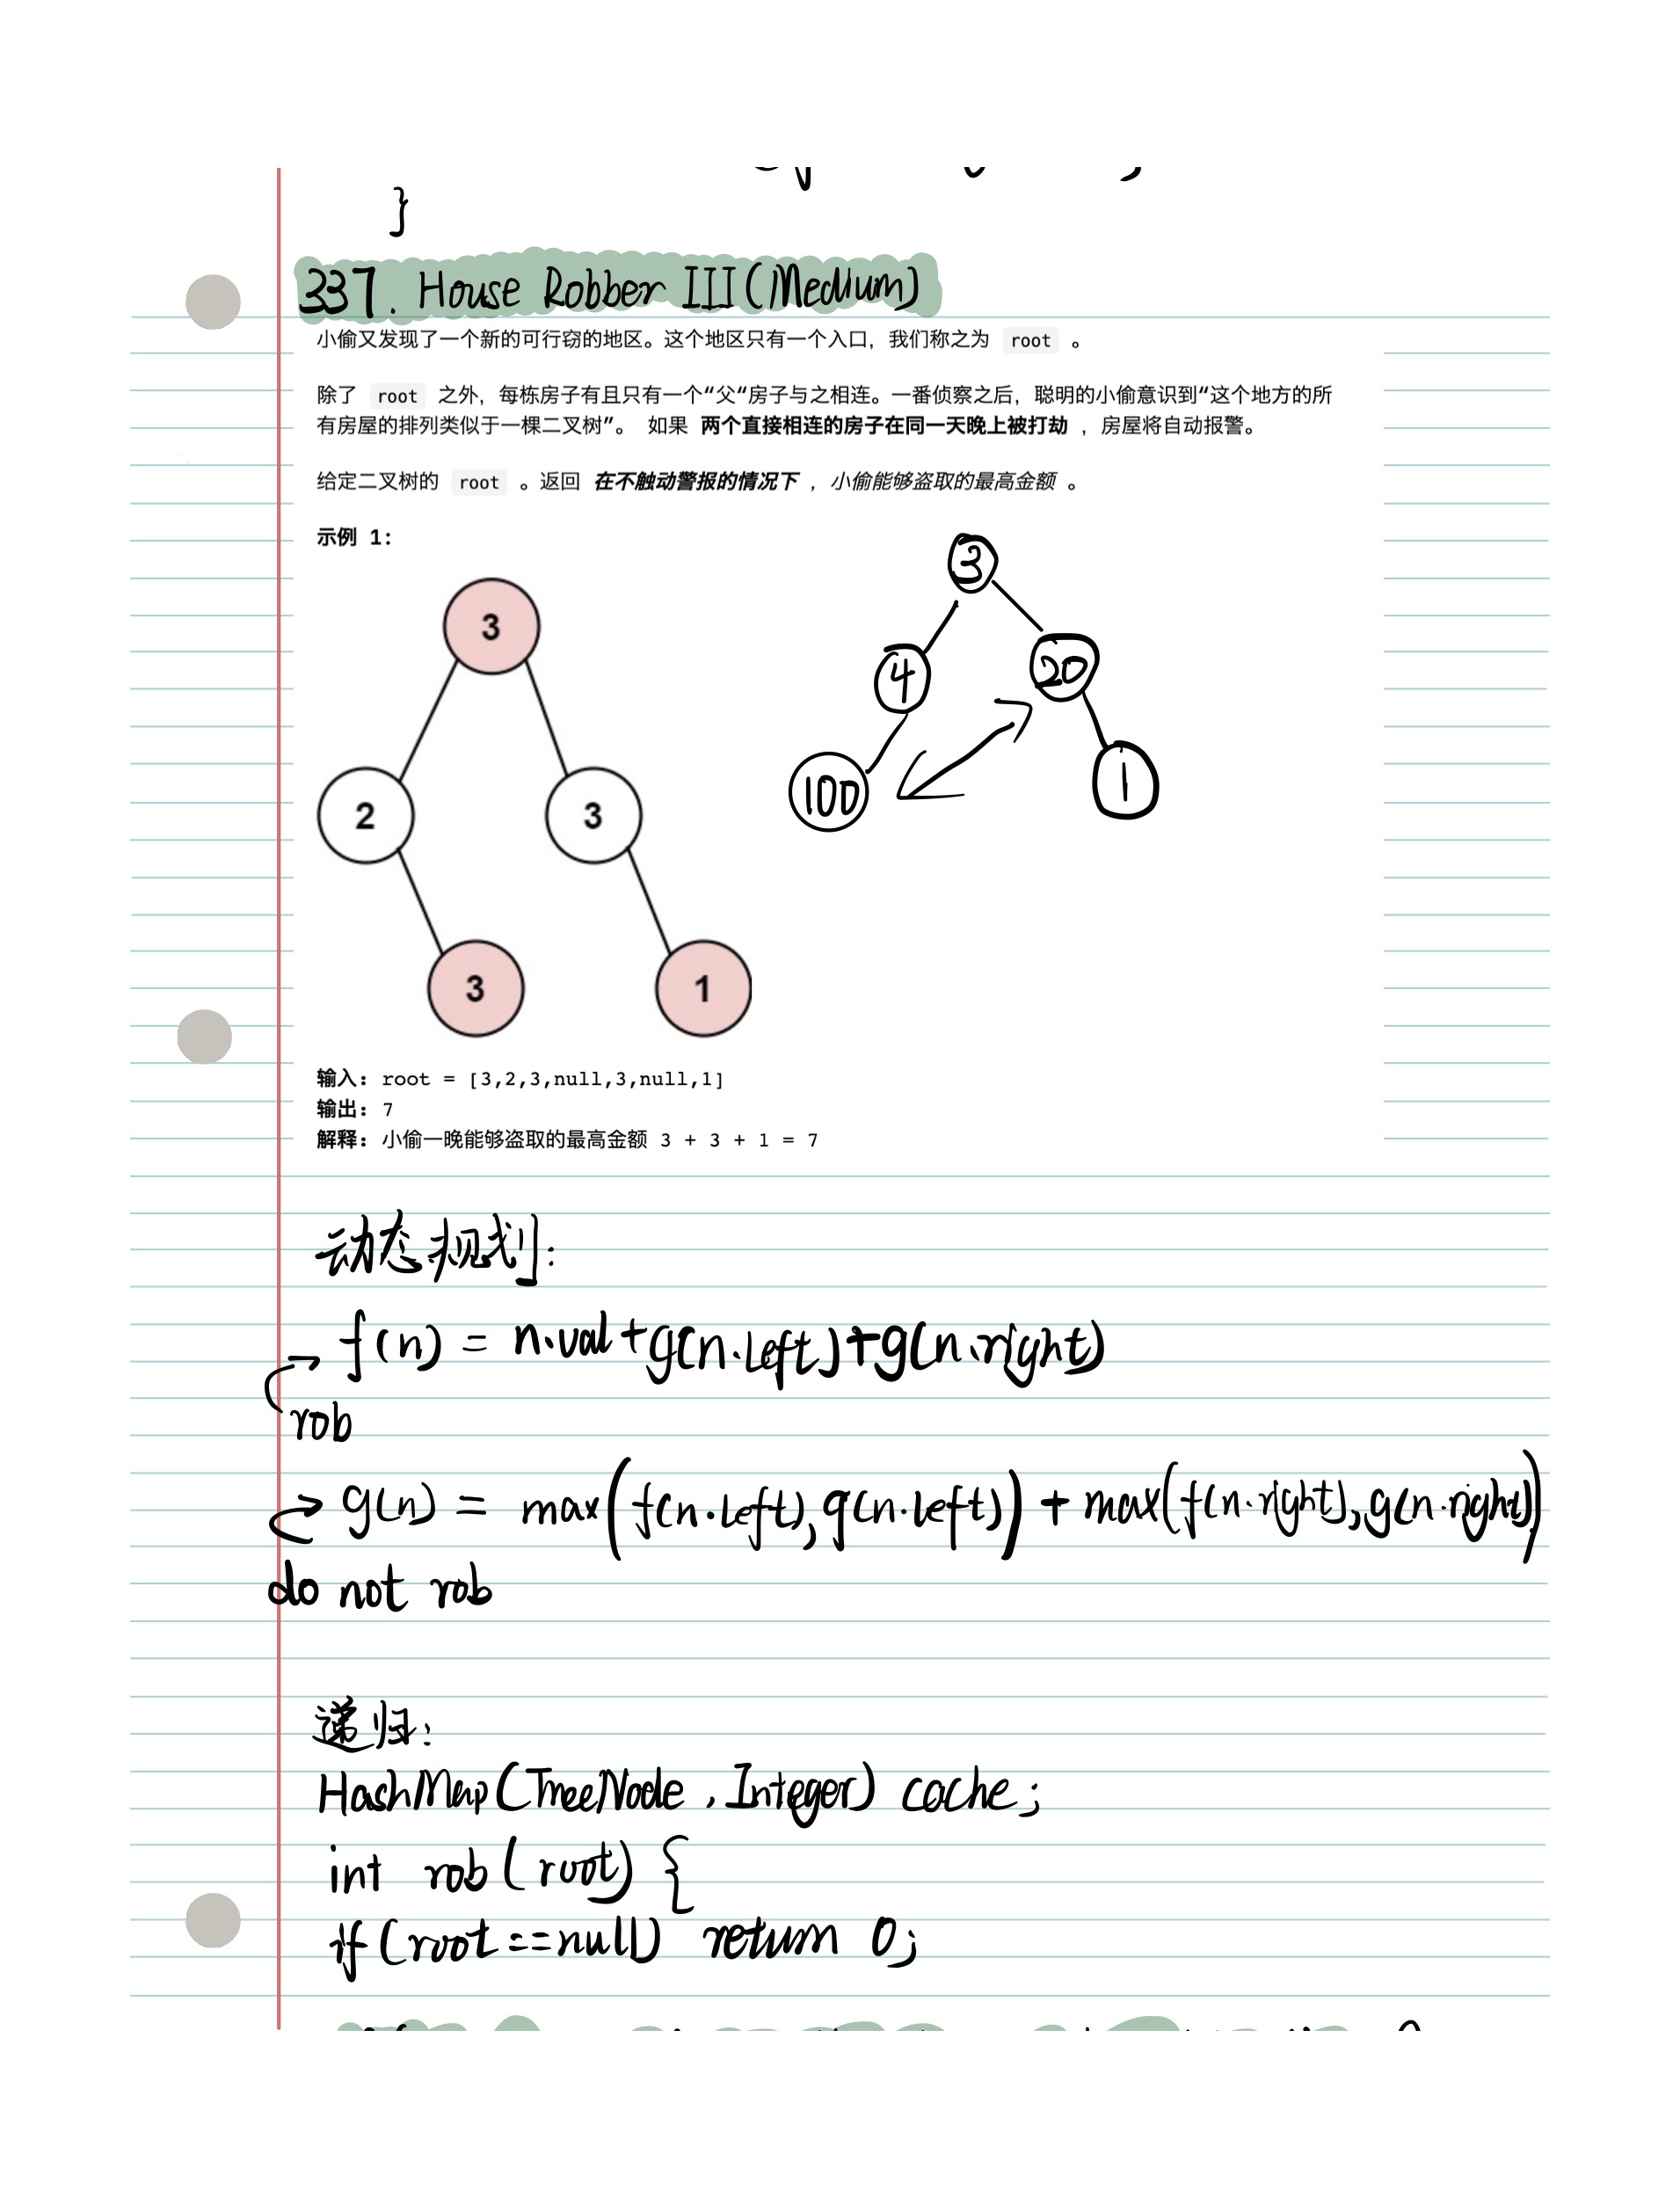 }
337. House Robber III (Medium)
小偷又发现了一个新的可行窃的地区。这个地区只有一个入口，我们称之为 root 。
除了 root 之外，每栋房子有且只有一个“父“房子与之相连。一番侦察之后，聪明的小偷意识到“这个地方的所
有房屋的排列类似于一棵二叉树”。 如果 两个直接相连的房子在同一天晚上被打劫 ，房屋将自动报警。
给定二叉树的 root 。返回 在不触动警报的情况下 ，小偷能够盗取的最高金额 。
示例 1:
3
2
3
3
1
3
4
20
100
1
输入: root = [3,2,3,null,3,null,1]
输出: 7
解释: 小偷一晚能够盗取的最高金额 3 + 3 + 1 = 7
动态规划:
f(n) = n.val+g(n.left)+g(n.right)
rob
g(n) = max(f(n.left),g(n.left)) + max(f(n.right),g(n.right))
do not rob
递归:
HashMap(TreeNode,Integer) cache;
int rob(root) {
if(root==null) return 0;